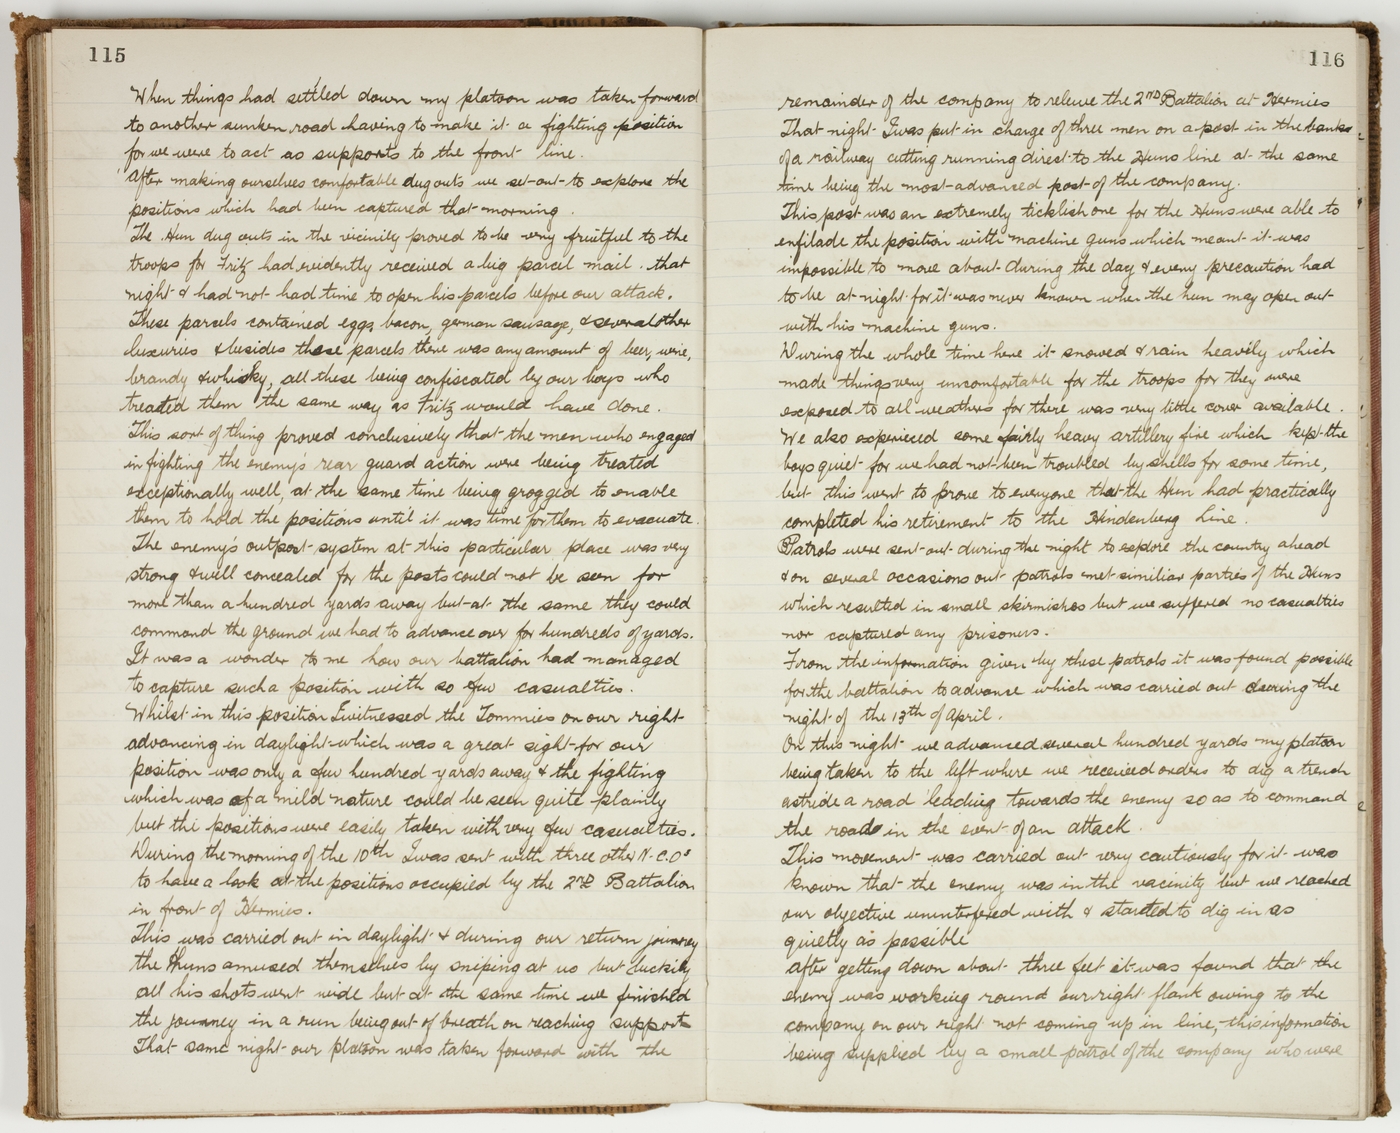 115
When things had settled down my platoon was taken forward
to another sunken road having to make it a fighting position
for we were to act as supports to the front line.
After making ourselves comfortable dug outs we set out to explore the
positions which had been captured that morning.
The Hun dug outs in the vicinity proved to be very fruitful to the
troops for Fritz had evidently received a big parcel mail that
night & had not had time to open his parcels before our attack.
These parcels contained eggs, bacon, german sausage, & several other
luxuries & besides these parcels there was any amount of beer, wine,
brandy & whisky, all these being confiscated by our boys who
treated them the same way as Fritz would have done.
This sort of thing proved conclusively that the men who engaged
in fighting the enemy's rear guard action were being treated
exceptionally well, at the same time being grogged to enable
them to hold the positions until it was time for them to evacuate.
The enemy's outpost system at this particular place was very
strong & well concealed for the posts could not be seen for
more than a hundred yards away but at the same they could
command the ground we had to advance over for hundreds of yards.
It was a wonder to me how our battalion had managed
to capture such a position with so few casualties.
Whilst in this position I witnessed the Tommies on our right
advancing in daylight which was a great sight for our
position was only a few hundred yards away & the fighting
which was of a mild nature could be seen quite plainly
but the positions were easily taken with very few casualties.
During the morning of the 10th I was sent with three other N.C.Os
to have a look at the positions occupied by the 2nd Battalion
in front of Hermies.
This was carried out in daylight & during our return journey
the Huns amused themselves by sniping at us but luckily
all his shots went wide but at the same time we finished
the journey in a run being out of breath on reaching supports
That same night our platoon was taken forward with the
116
remainder of the company to relieve the 2ND Battalion at Hermies
That night I was put in charge of three men on a post in the banks
of a railway cutting running direct to the Huns line at the same
time being the most advanced post of the company.
This post was an extremely ticklish one for the Huns were able to
enfilade the position with machine guns which meant it was
impossible to move about during the day & every precaution had
to be at night for it was never known when the hun may open out
with his machine guns.
During the whole time here it snowed & rain heavily which
made things very uncomfortable for the troops for they were
exposed to all weathers for there was very little cover available.
We also experieced some fairly heavy artillery fire which kept the
boys quiet for we had not been troubled by shells for some time,
but this went to prove to everyone that the Hun had practically
completed his retirement to the Hindenberg Line.
Patrols were sent out during the night to explore the country ahead
& on several occasions out patrols met similiar parties of the Huns
which resulted in small skirmishes but we suffered no casualties
nor captured any prisoners.
From the information given by these patrols it was found possible
for the battalion to advance which was carried out during the
night of the 13th of April.
On this night we advanced several hundred yards my platoon
being taken to the left where we received orders to dig a trench
astride a road leading towards the enemy so as to command
the road in the event of an attack.
This movement was carried out very cautiously for it was
known that the enemy was in the vacinity but we reached
our objective uninterfered with & started to dig in as
quietly as possible
After getting down about three feet it was found that the
enemy was working round our right flank owing to the
company on our right not coming up in line, this information
being supplied by a small patrol of the company who were